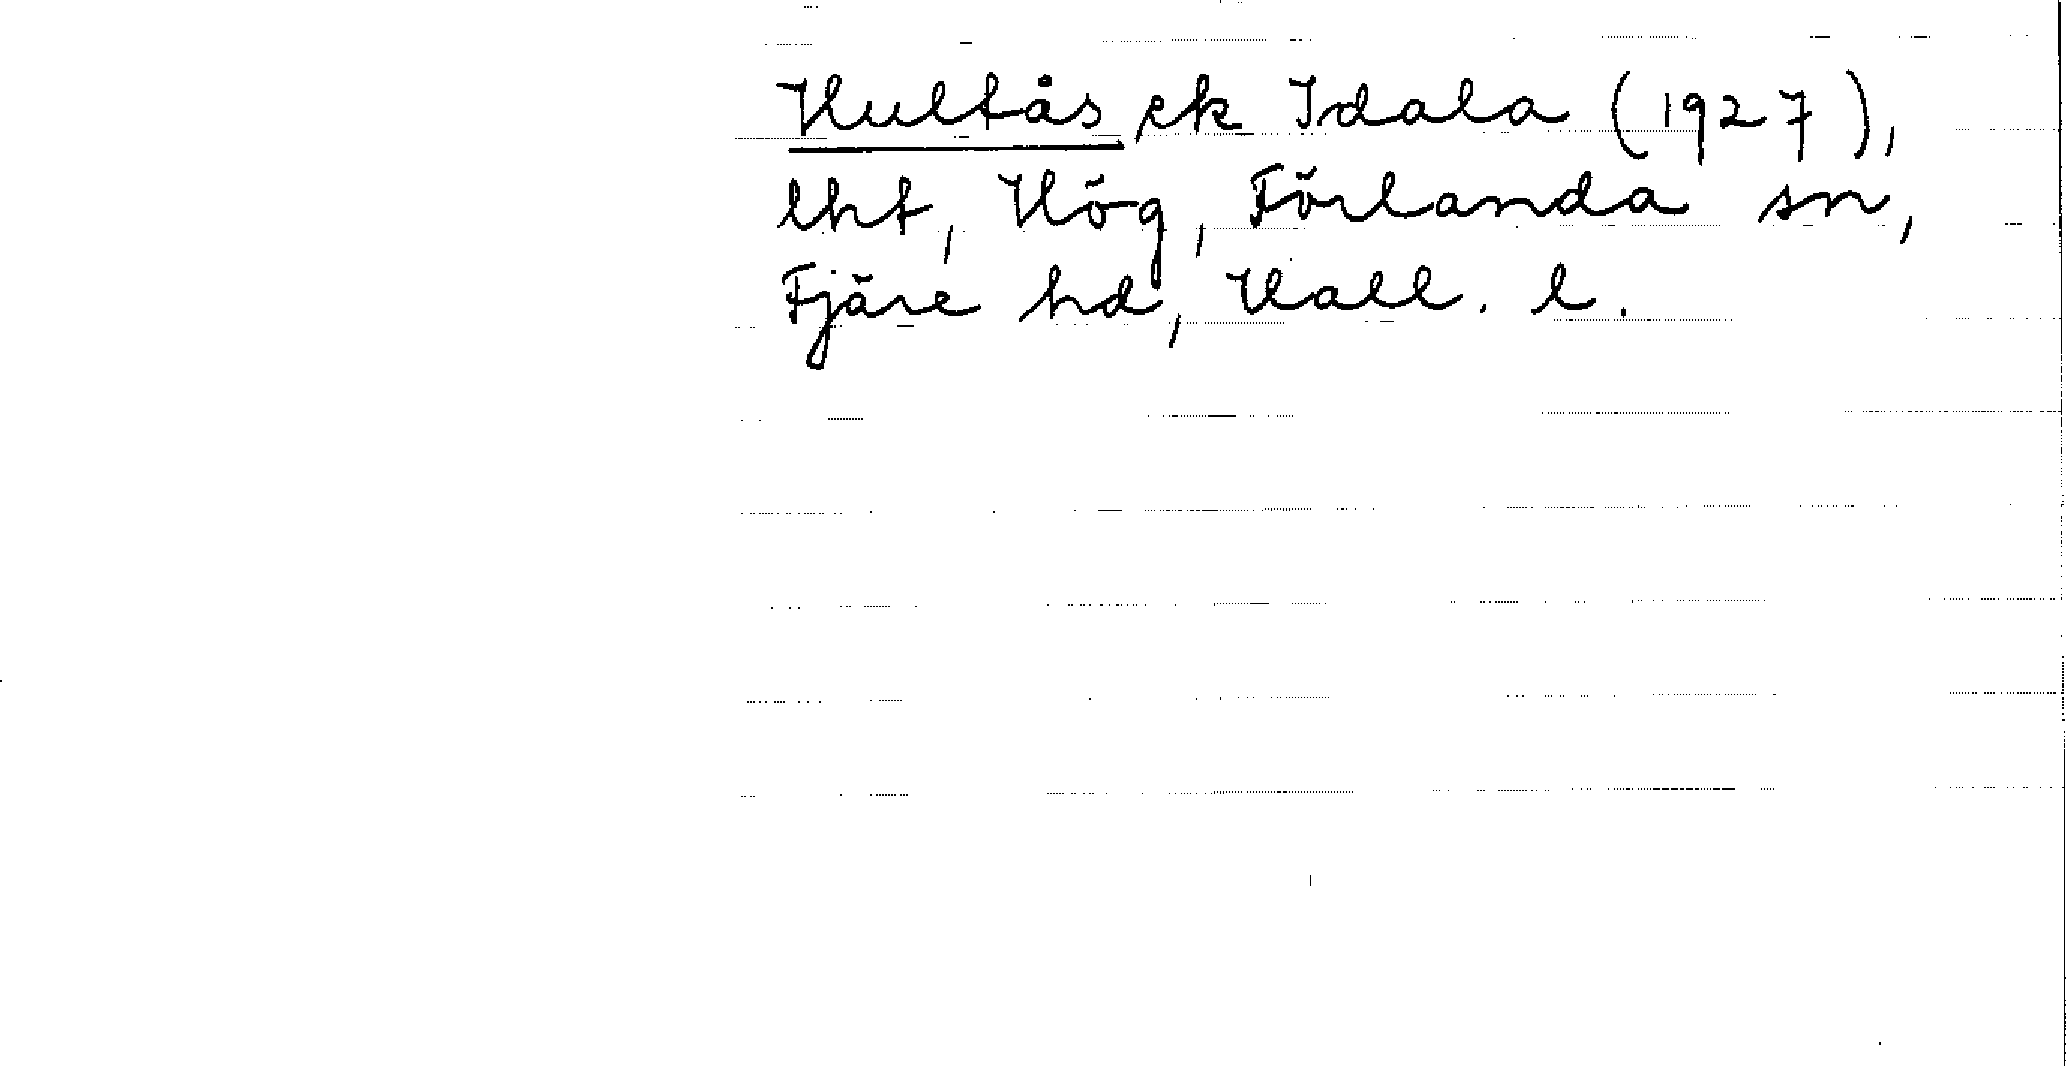 Hultås ek Idala (1927),
lht, Hög, Förlanda sn,
Fjäre hd, Hall. l.